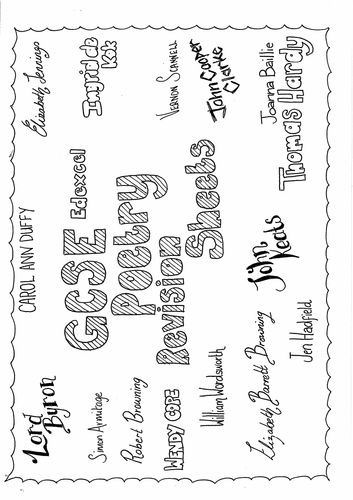 Lord
Byron
CAROL ANN DUFFY
Elizabeth Jennings
Simon Armitage
Ingrid de
Kok
GCSE Edexcel
Poetry
Revision
Sheets
Robert Browning
WENDY COPE
Vernon Scannell
John Cooper
Clarke
William Wordsworth
John
Keats
Joanna Baillie
Thomas Hardy
Elizabeth Barrett Browning
Jen Hadfield